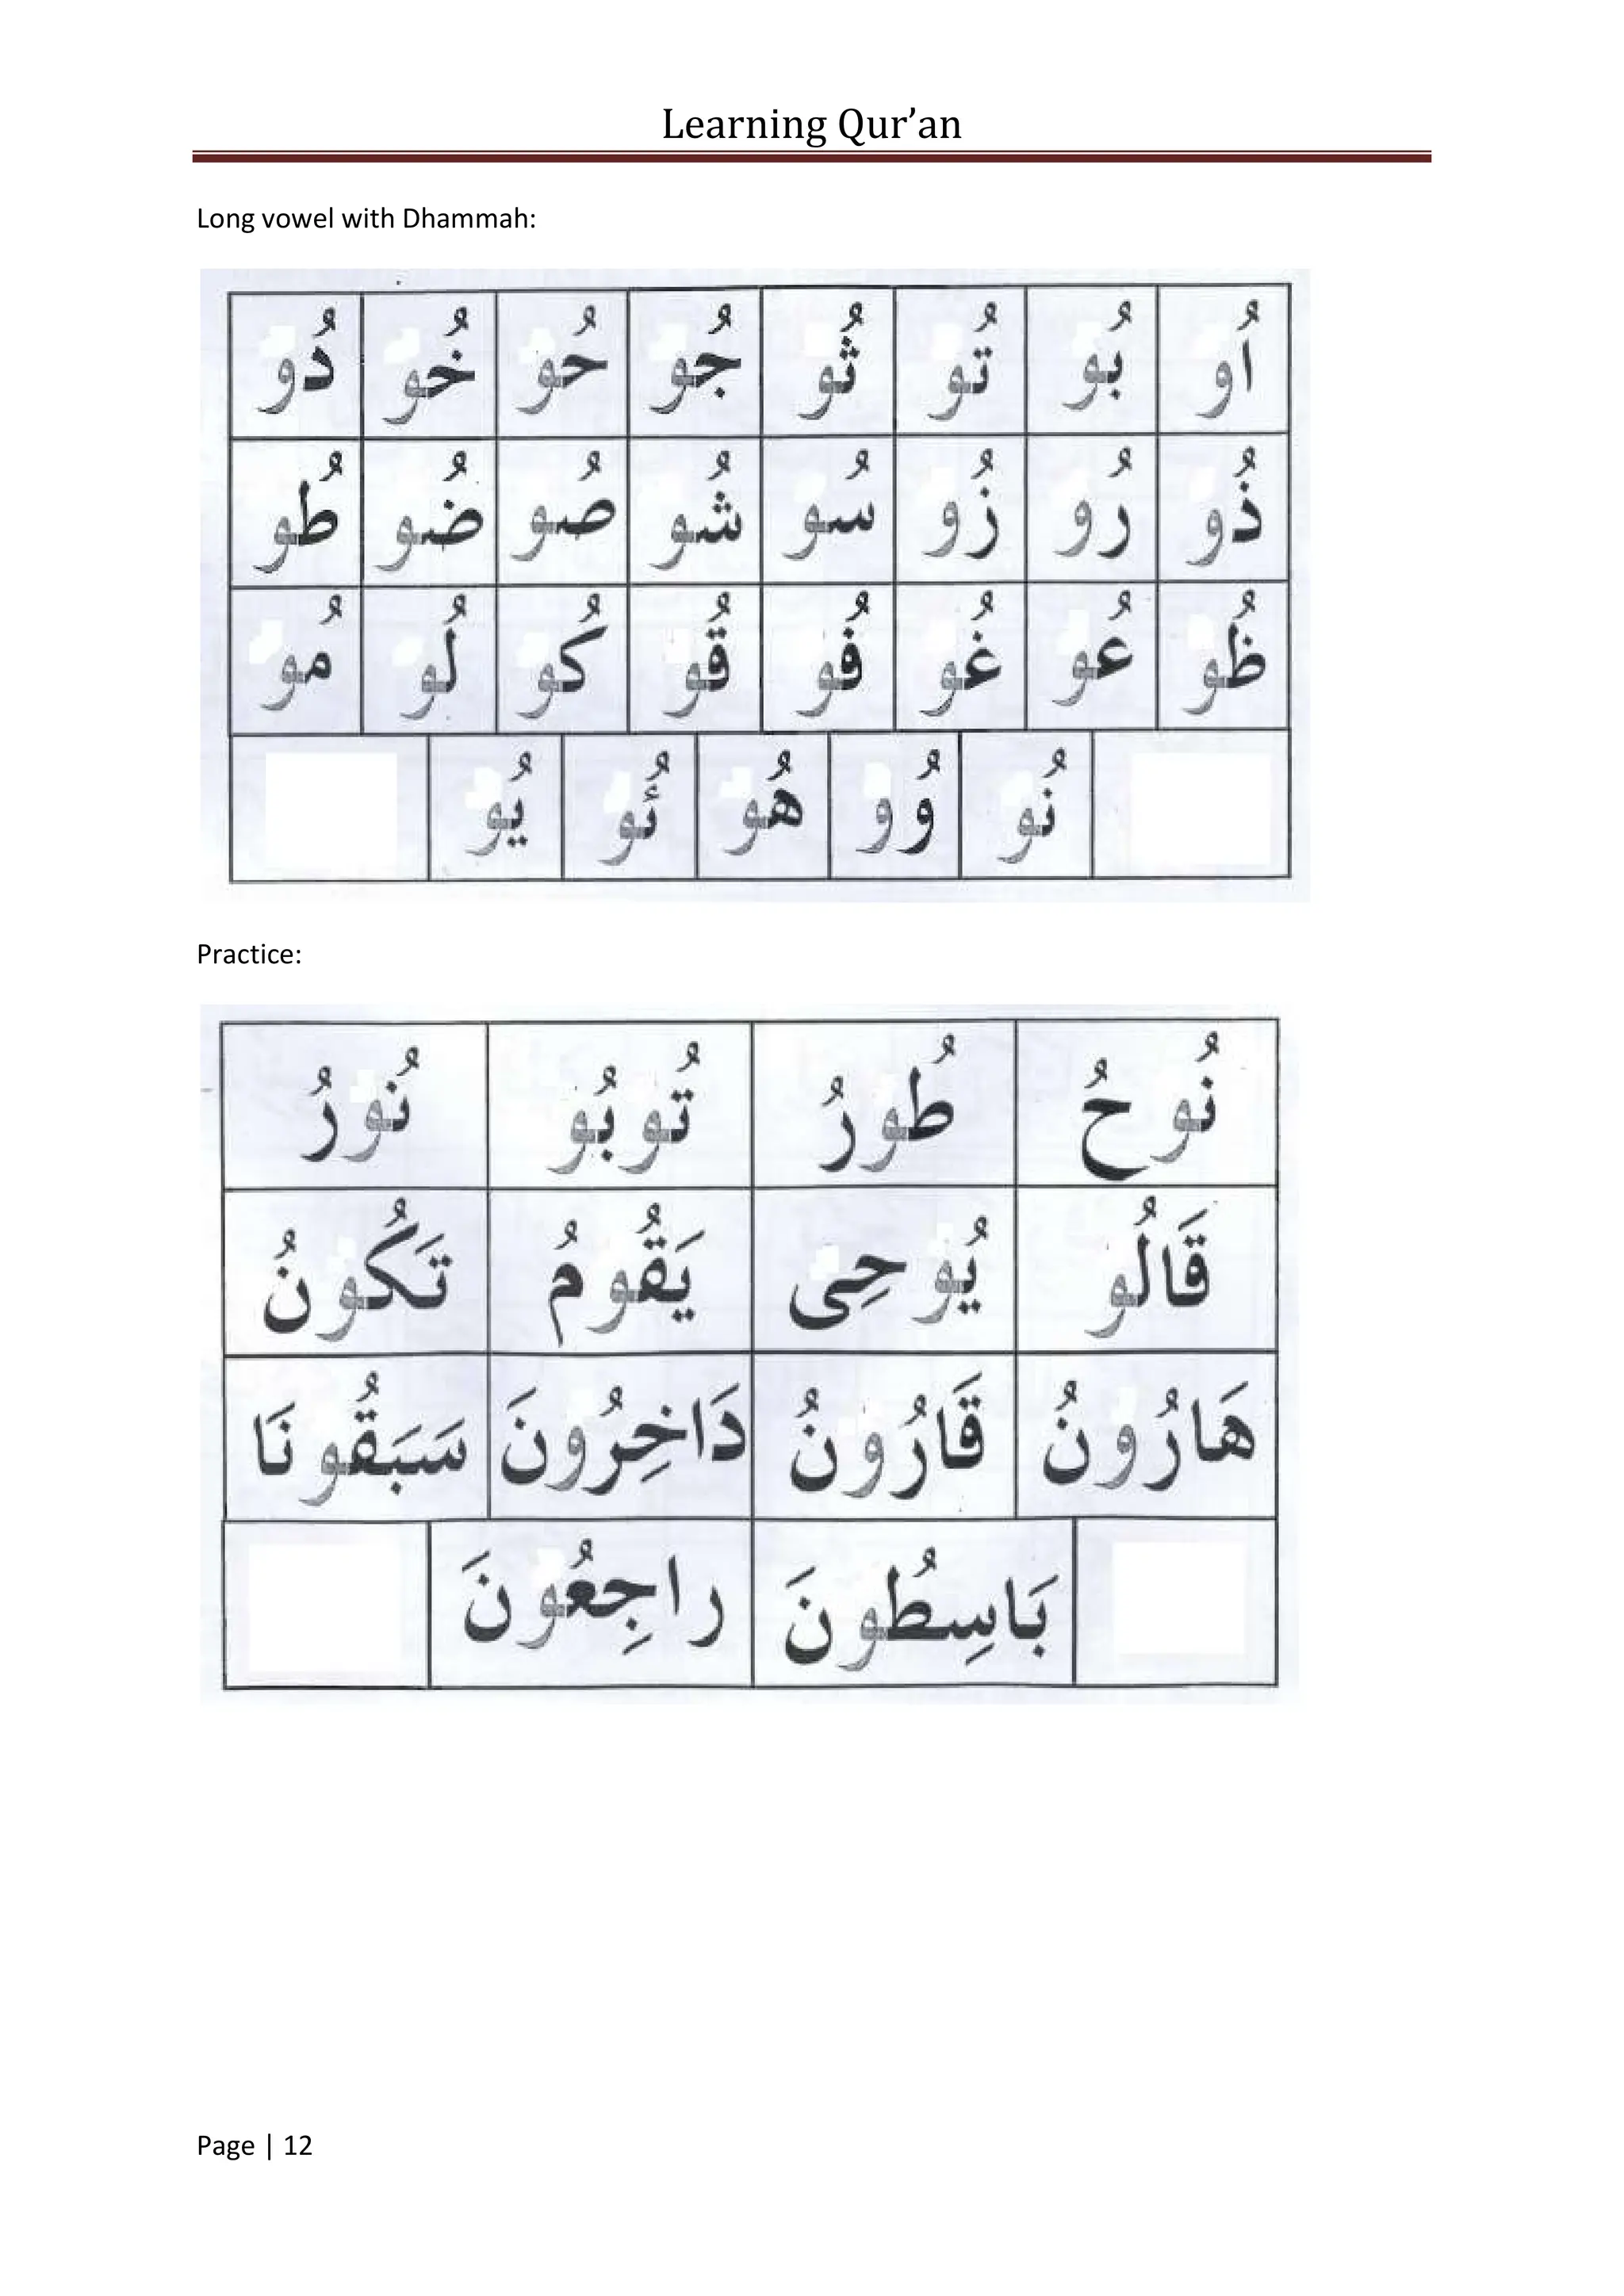 Learning Qur’an
Long vowel with Dhammah:
اُو بُو تُو ثُو جُو حُو خُو دُو
ذُو رُو زُو سُو شُو صُو ضُو طُو
ظُو عُو غُو فُو قُو كُو لُو مُو
نُو وُو هُو ئُو يُو
Practice:
نُوحُ طُورُ تُوبُو نُورُ
قَالُو يُوحِى يَقُومُ تَكُونُ
هَارُونُ قَارُونُ دَاخِرُونَ سَبَقُونَا
بَاسِطُونَ راجِعُونَ
Page | 12